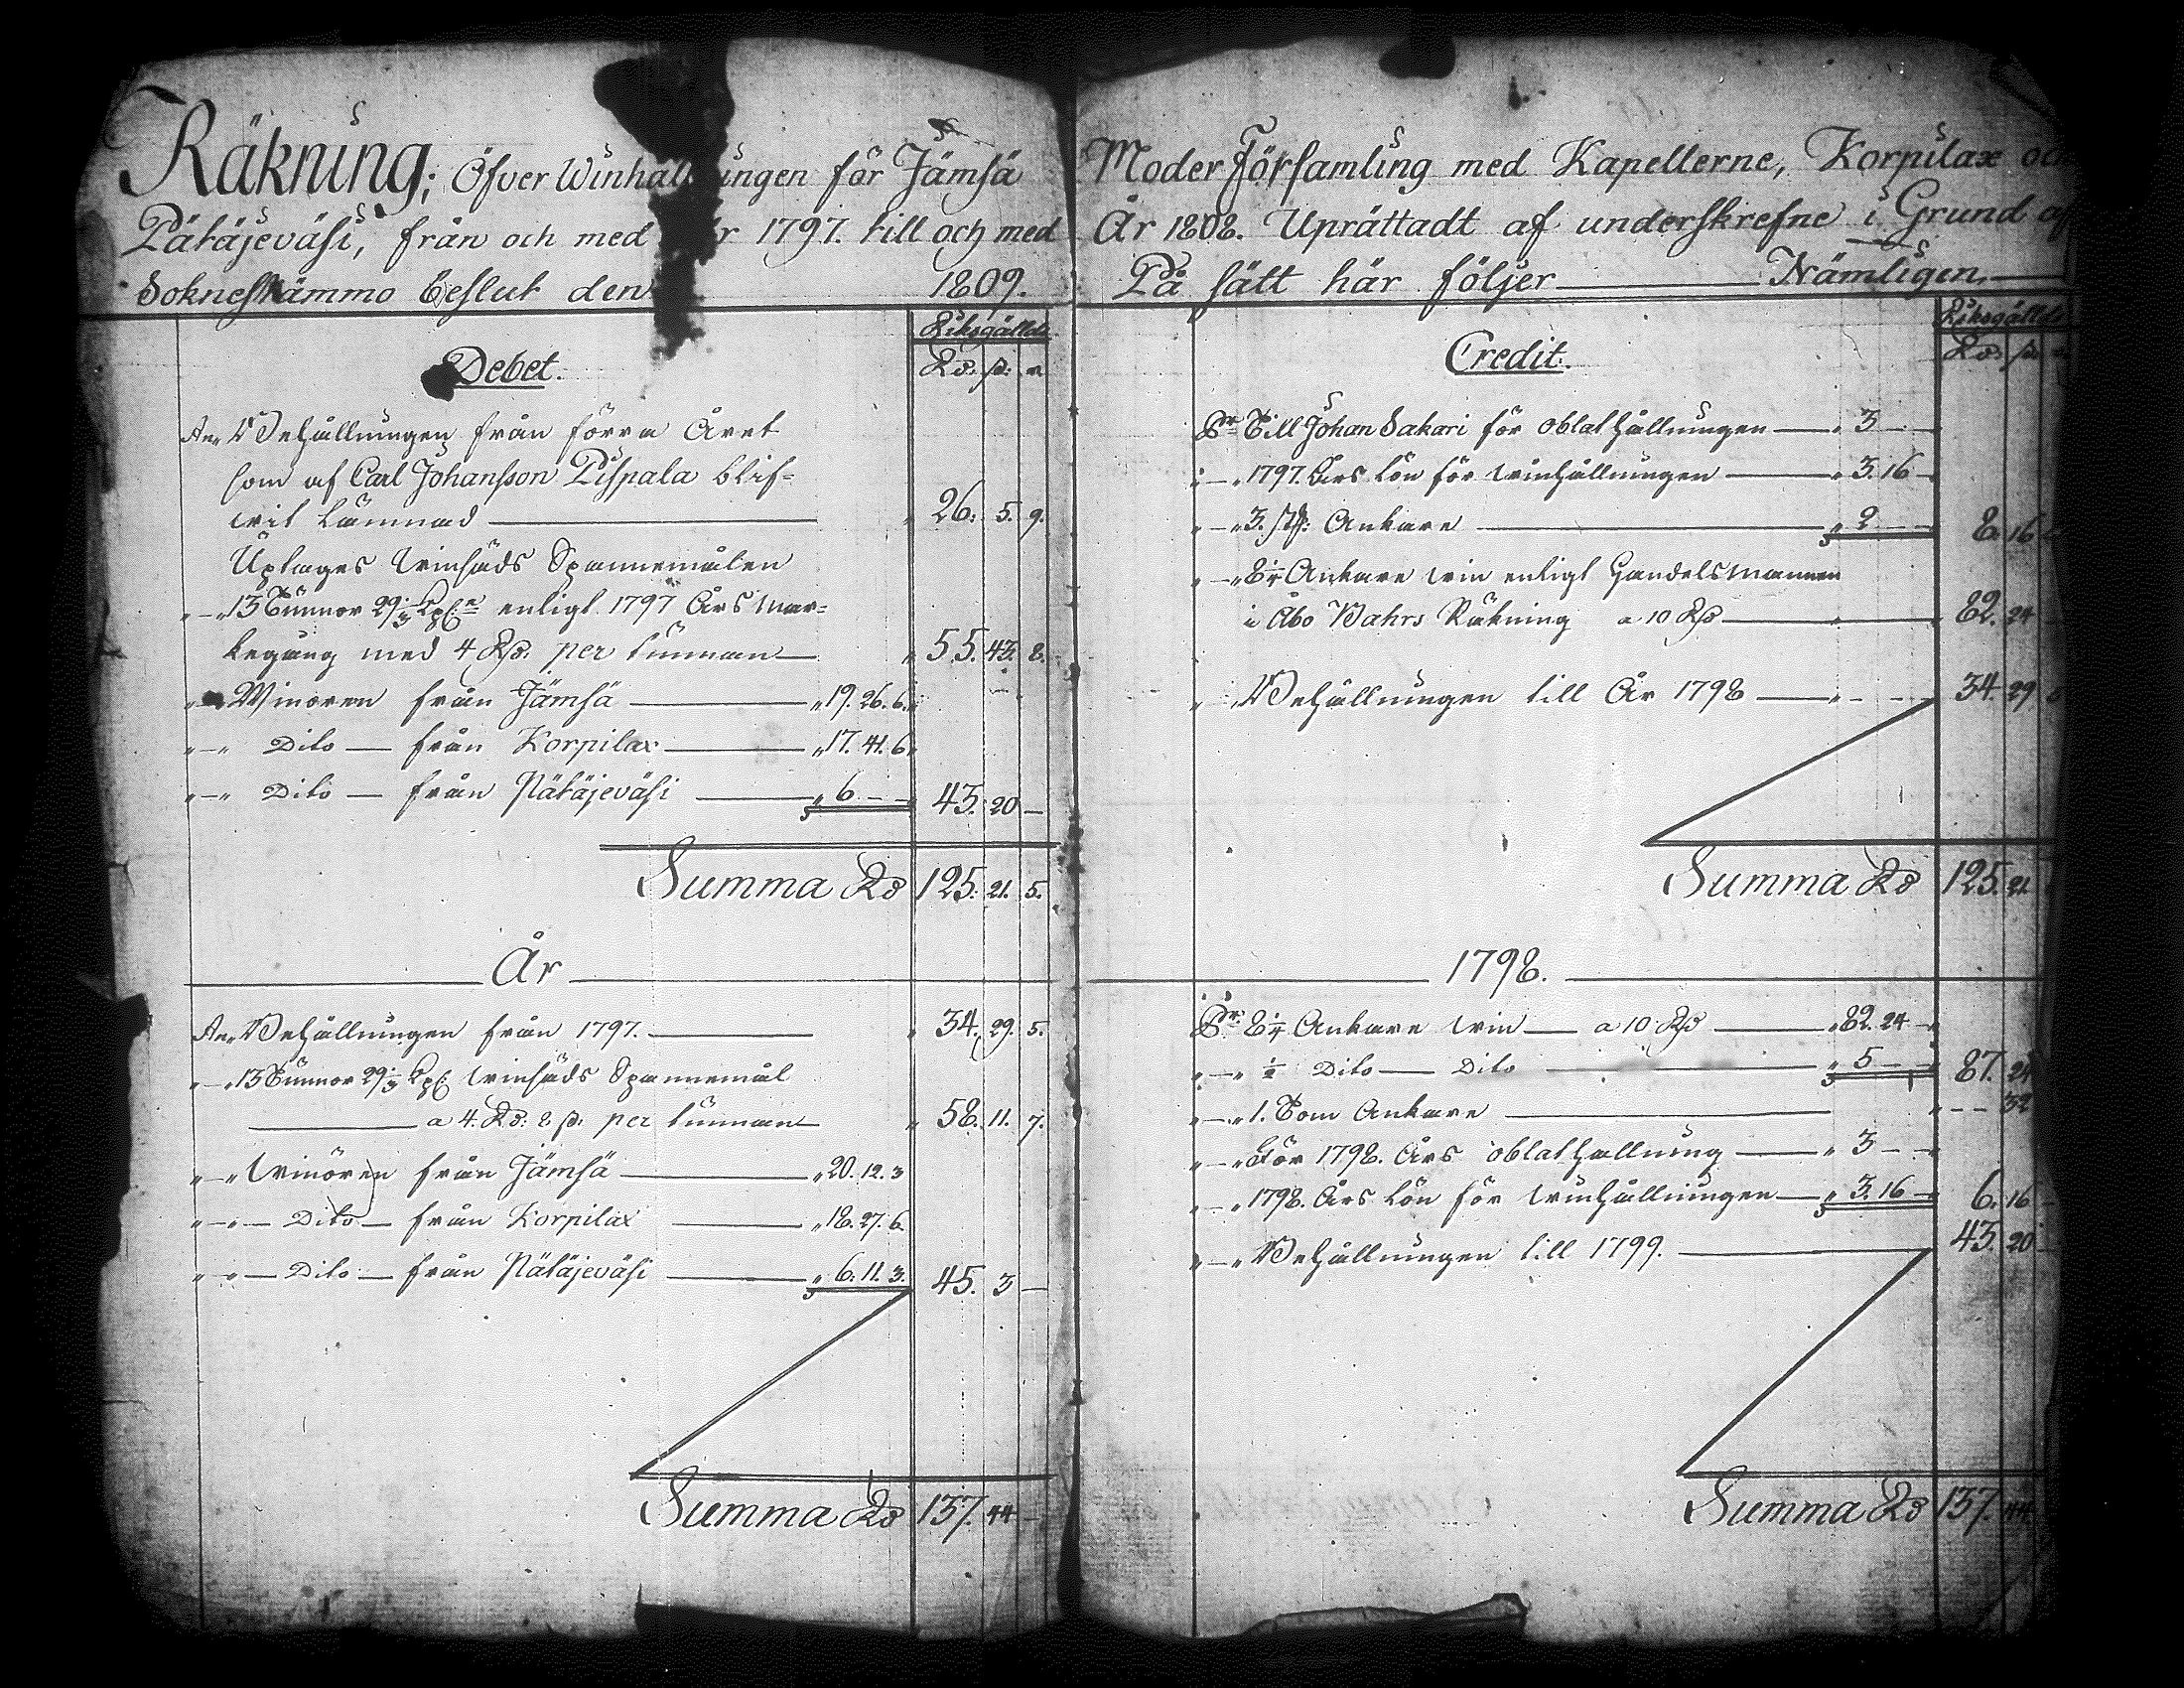 Räkning; Öfver Winhållningen för Jämsä
Pätäjeväsi, från och med År 1797. till och med
Sokneskämmo beslut den 1809.
Riksgälds
Debet. Rd: ß: r
An Behållningen från förra Året
som af Carl Johansson Pispala blif=
wit lämnad 26. 5. 9.
Uptages winsäds Spannemålen
" — " 13 Tunnor 29 1/3 Kpr enligt 1797 Års Mar=
kegång med 4 Rd: per tunnan " 55. 43. 8.
" Winören från Jämsä " 19. 26. 6.
" — " Dito — från Korpilax " 17. 41. 6
" — " Dito — från Pätäjeväsi " 6 — — 43. 20 —
Summa Rd 125. 21. 5.
År
An Behållningen från 1797. " 34. 29. 5.
" — " 13 Tunnor 29 1/3 Kpr winsäds Spannemål
a 4. Rd: 8 ß. per tunnan " 58. 11. 7.
" — " Winören från Jämsä " 20. 12. 3
" — " — Dito — från Korpilax " 18. 27. 6.
" — " — Dito — från Pätäjeväsi " 6. 11. 3. 45. 3 —
Summa Rd 137. 44 —
Moder Församling med Kapellerne, Korpilax och
År 1808. Uprättadt af underskrefne i Grund af
På sätt här följer — Nämligen.
Riksgälds
Credit. Rd: ß:
Pr Till Johan Sakari för oblathållningen — " 3 — —
" — " 1797. Års Lön för winhållningen — " 3. 16 —
" — " 3. st: Ankare " 2 — — 8. 16
" — " 8 1/4 Ankare win enligt Handelsmannen
i Åbo Bahrs Räkning a 10 Rd — " 82. 24
" Behållningen till År 1798 — " — — 34. 29
Summa Rd 125. 21
1798.
Pr 8 1/4 Ankare win — a 10 Rd — " 82. 24 —
" — " 1/2 Dito — Dito — " 5 — — 87. 24
" — " 1. Tom Ankare " — — 32
" — " För 1798. Års oblathållning — " 3 — —
" — " 1798. Års Lön för winhållningen — " 3. 16 — 6. 16
" — " Behållningen till 1799. — 43. 20
Summa Rd 137. 44